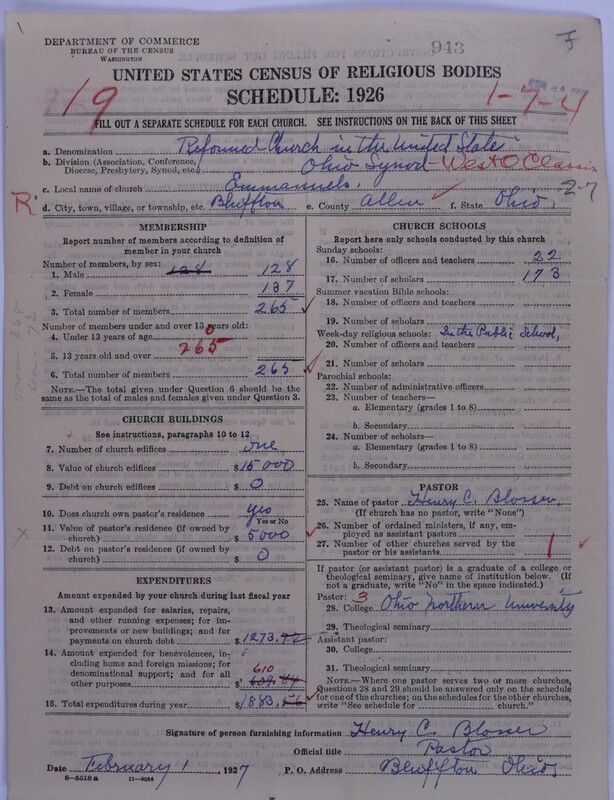 DEPARTMENT OF COMMERCE
BUREAU OF THE CENSUS
WASHINGTON
943
UNITED STATES CENSUS OF RELIGIOUS BODIES
SCHEDULE: 1926
119
1-7-4
FILL OUT A SEPARATE SCHEDULE FOR EACH CHURCH. SEE INSTRUCTIONS ON THE BACK OF THIS SHEET
a. Denomination Reformed Church in the United States
b. Division (Association, Conference, Diocese, Presbytery, Synod, etc.) Ohio Synod - West O Classis
c. Local name of church Emmanuels. 2-7
R
d. City, town, village, or township, etc. Bluffton e. County Allen f. State Ohio.
MEMBERSHIP
Report number of members according to definition of member in your church
Number of members, by sex:
1. Male 128 128
2. Female 137
3. Total number of members 265
Number of members under and over 13 years old:
4. Under 13 years of age 0
5. 13 years old and over 265
6. Total number of members 265
NOTE.—The total given under Question 6 should be the same as the total of males and females given under Question 3.
CHURCH BUILDINGS
See instructions, paragraphs 10 to 12
7. Number of church edifices one
8. Value of church edifices $15000
9. Debt on church edifices $0
10. Does church own pastor's residence? yes
Yes or No
11. Value of pastor's residence (if owned by church) $5000
12. Debt on pastor's residence (if owned by church) $0
EXPENDITURES
Amount expended by your church during last fiscal year
13. Amount expended for salaries, repairs, and other running expenses; for improvements or new buildings; and for payments on church debt $1273.72
14. Amount expended for benevolences, including home and foreign missions; for denominational support; and for all other purposes $609.84 610
15. Total expenditures during year $1883.56
CHURCH SCHOOLS
Report here only schools conducted by this church
Sunday schools:
16. Number of officers and teachers 22
17. Number of scholars 173
Summer vacation Bible schools:
18. Number of officers and teachers
19. Number of scholars
Week-day religious schools: In the Public School,
20. Number of officers and teachers
21. Number of scholars
Parochial schools:
22. Number of administrative officers
23. Number of teachers—
a. Elementary (grades 1 to 8)
b. Secondary
24. Number of scholars—
a. Elementary (grades 1 to 8)
b. Secondary
PASTOR
25. Name of pastor Henry C. Blosser.
(If church has no pastor, write "None")
26. Number of ordained ministers, if any, employed as assistant pastors
27. Number of other churches served by the pastor or his assistants 1
If pastor (or assistant pastor) is a graduate of a college or theological seminary, give name of institution below. (If not a graduate, write "No" in the space indicated.)
Pastor: 3
28. College Ohio Northern University
29. Theological seminary
Assistant pastor:
30. College
31. Theological seminary
NOTE.—Where one pastor serves two or more churches, Questions 28 and 29 should be answered only on the schedule for one of the churches; on the schedules for the other churches, write "See schedule for church."
Signature of person furnishing information Henry C. Blosser
Official title Pastor
Date February 1, 1927 P. O. Address Bluffton Ohio.
8-5318a 11-9054